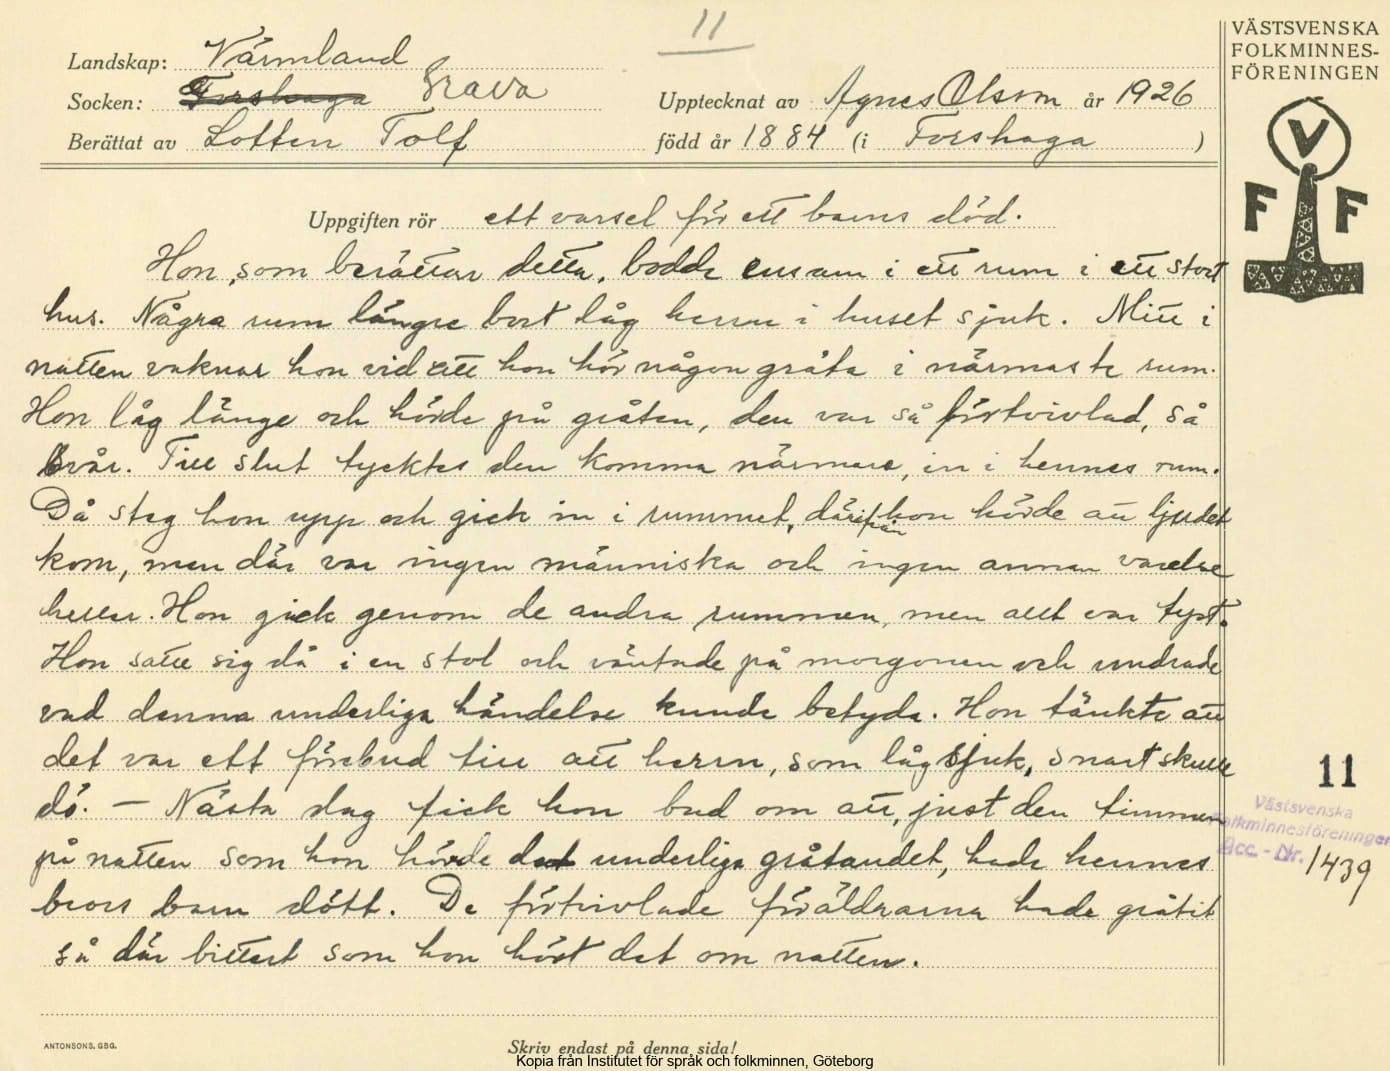 11
VÄSTSVENSKA
FOLKMINNES-
FÖRENINGEN
V
F F
Landskap: Värmland
Socken: Forshaga Grava
Upptecknat av Agnes Olsson år 1926
Berättat av Lotten Tolf född år 1884 (i Forshaga)
Uppgiften rör ett varsel för ett barns död.
Hon, som berättar detta, bodde ensam i ett rum i ett stort
hus. Några rum längre bort låg herrn i huset sjuk. Mitt i
natten vaknar hon vid att hon hör någon gråta i närmaste rum.
Hon låg länge och hörde på gråten, den var så förtvivlad, så
svår. Till slut tycktes den komma närmare, in i hennes rum.
Då steg hon upp och gick in i rummet, därifrån hon hörde att ljudet
kom, men där var ingen människa och ingen annan varelse
heller. Hon gick genom de andra rummen, men allt var tyst.
Hon satte sig då i en stol och väntade på morgonen och undrade
vad denna underliga händelse kunde betyda. Hon tänkte att
det var ett förebud till att herrn, som låg sjuk, snart skulle
dö. — Nästa dag fick hon bud om att, just den timmen
på natten som hon hörde det underliga gråtandet, hade hennes
brors barn dött. De förtvivlade föräldrarna hade gråtit
så där bittert som hon hört det om natten.
11
Västsvenska
Folkminnesföreningen
Acc.-Nr. 1439
ANTONSONS, GBG.
Skriv endast på denna sida!
Kopia från Institutet för språk och folkminnen, Göteborg